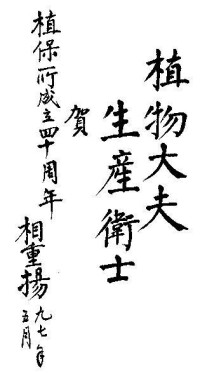 植物大夫
生産衛士
賀
植保所成立四十周年
相重揚
九七年
五月